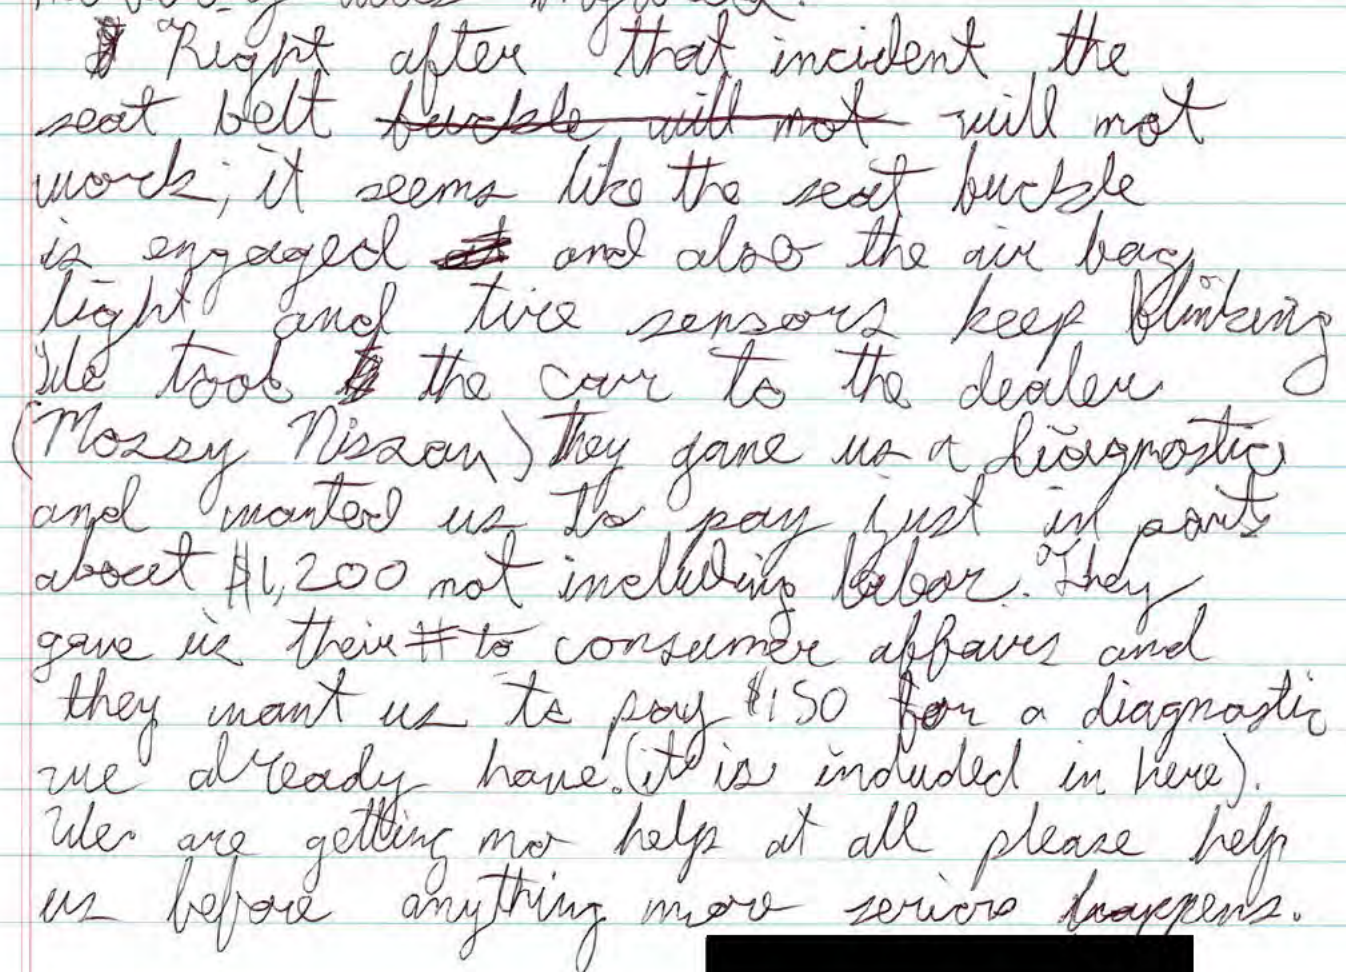 Right after that incident the
seat belt buckle will not will not
work; it seems like the seat buckle
is engaged and also the air bag
light and tire sensors keep blinking
We took the car to the dealer
(Mossy Nissan) They gave us a diagnostic
and wanted us to pay just in parts
about $1,200 not including labor. They
gave us their # to consumer affairs and
they want us to pay $150 for a diagnostic
we already have. (it is included in here).
We are getting no help at all please help
us before anything more serios happens.